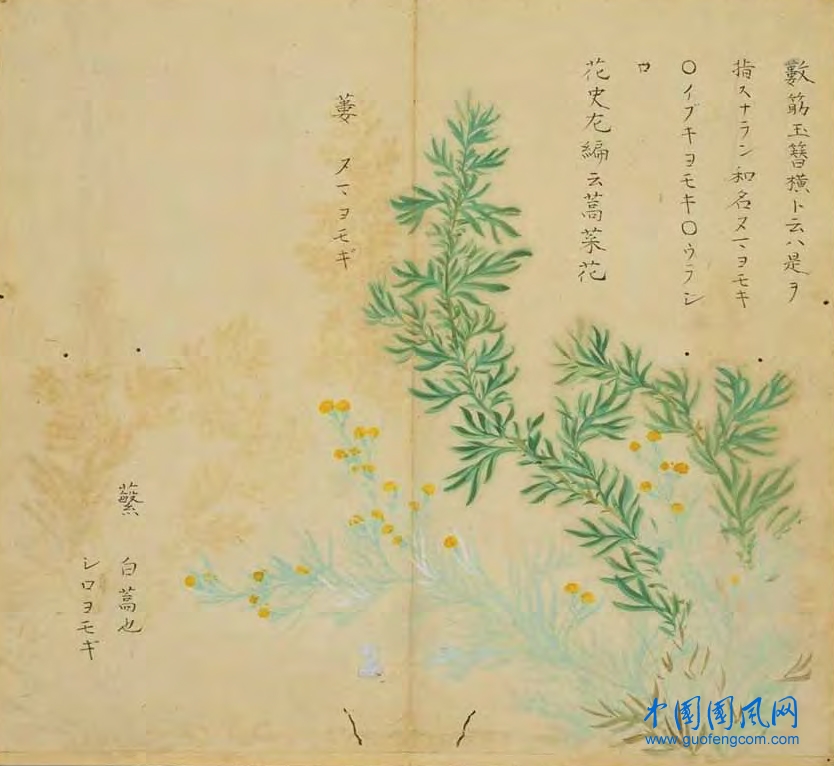 數筯玉簪横ト云ハ是ヲ
指スナラン和名ヌマヨモキ
〇イブキヨモキ〇ウラシ
ロ
花史左編云蒿菜花
蔞 ヌマヨモギ
蘩 白蒿也
シロヨモギ
中国国风网
www.guofengcom.com